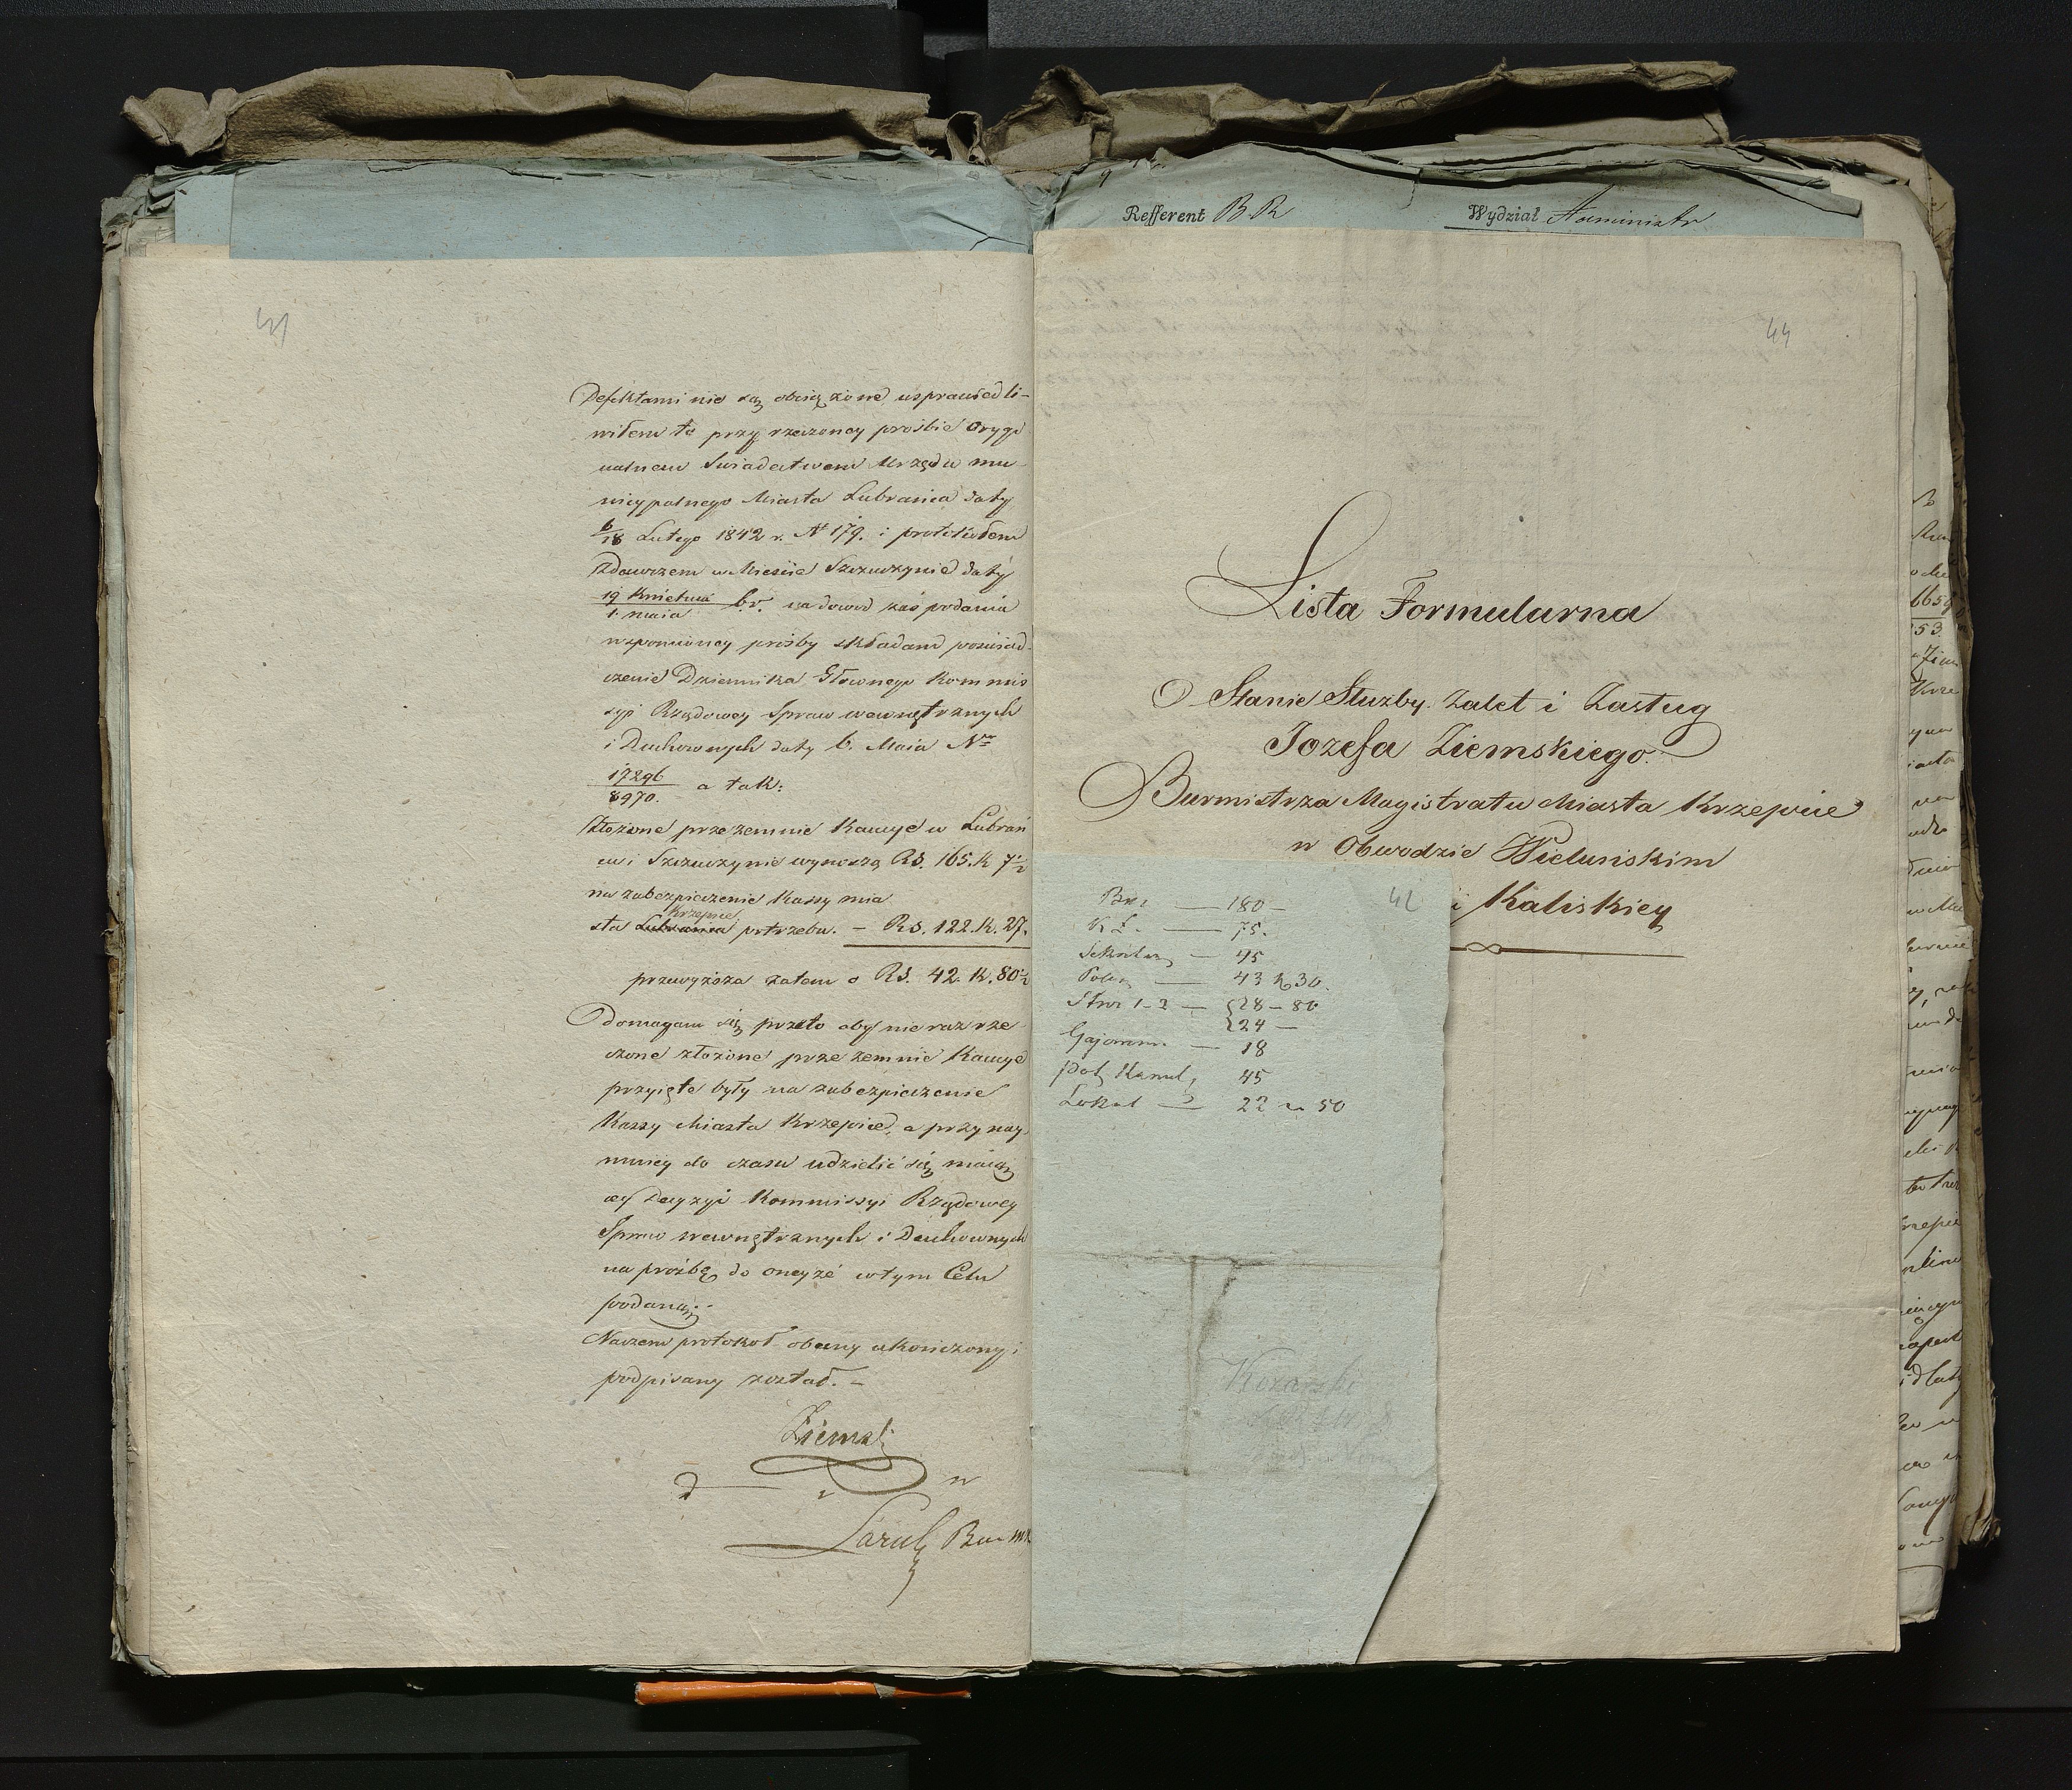 41
Defektami nie są obciążone, usprawiedli-
wiłem to przy rzeczoney prośbie orygi
nalnem Swiadectwem Urzędu mu-
nicypalnego Miasta Lubrańca daty
6/18 Lutego 1842 r. N 179. i protokułem
Zdawczem w Mieście Szczuczynie daty
19 Kwietnia/1. maia b.r. na dowod zaś podania
wspomnioney prośby składam poświad-
czenie Dziennika Głownego Kommis
syi Rządowey Spraw wewnętrznych
i Duchownych daty 6. Maia Nro
17296/8970. a tak:
Złożone przezemnie Kaucye w Lubrań
cu i Szczuczynie wynoszą RS. 165. K 7½
na zabezpieczenie Kassy mia
Krzepice
sta Lubrańca potrzeba. – RS. 122. K. 27.
przewyższa zatem o RS. 42. K. 80½
Domagam się przeto aby nieraz rze
czone złożone przezemnie Kaucye
przyięte były na zabezpieczenie
Kassy Miasta Krzepice, a przynay
mniey do czasu udzielić się maiącey
Decyzyi Kommissyi Rządowey
Spraw wewnętrznych i Duchownych
na prośbę do oneyże w tym Celu
podaną.-
Naczem protokoł obecny ukończony i
podpisany został. –
Ziemski
Refferent B.R
Wydział Administr
44
Lista Formularna
O Stanie Służby. Zalet i Zasług
Jozefa Ziemskiego.
Burmistrza Magistratu Miasta Krzepice
w Obwodzie Wieluńskim
i Kaliskiey
42
Bur — 180 –
K Ł. — 75.
Sekretarz — 45
Polic — 43 k 30.
Stroż 1-2 — 28 – 80
24 –
Gajowem — 18
45
Lokal — 22 – 50
Kozarski